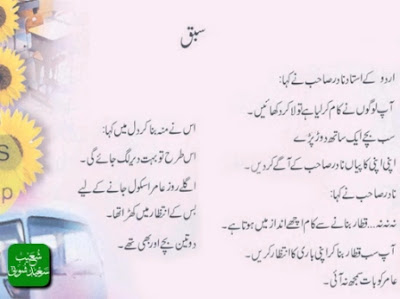 سبق
اردو کے استاد نادر صاحب نے کہا:
آپ لوگوں نے کام کر لیا ہے تو لا کر دکھائیں۔
سب بچے ایک ساتھ دوڑ پڑے
اپنی اپنی کاپیاں نادر صاحب کے آگے کر دیں۔
نادر صاحب نے کہا:
نہ نہ نہ... قطار بنانے سے کام اچھے انداز میں ہوتا ہے۔
آپ سب قطار بنا کر اپنی باری کا انتظار کریں۔
عامر کو بات سمجھ نہ آئی۔
اس نے منہ بنا کر دل میں کہا:
اس طرح تو بہت دیر لگ جائے گی۔
اگلے روز عامر اسکول جانے کے لیے
بس کے انتظار میں کھڑا تھا۔
دو تین بچے اور بھی تھے۔
S
P
شعیب